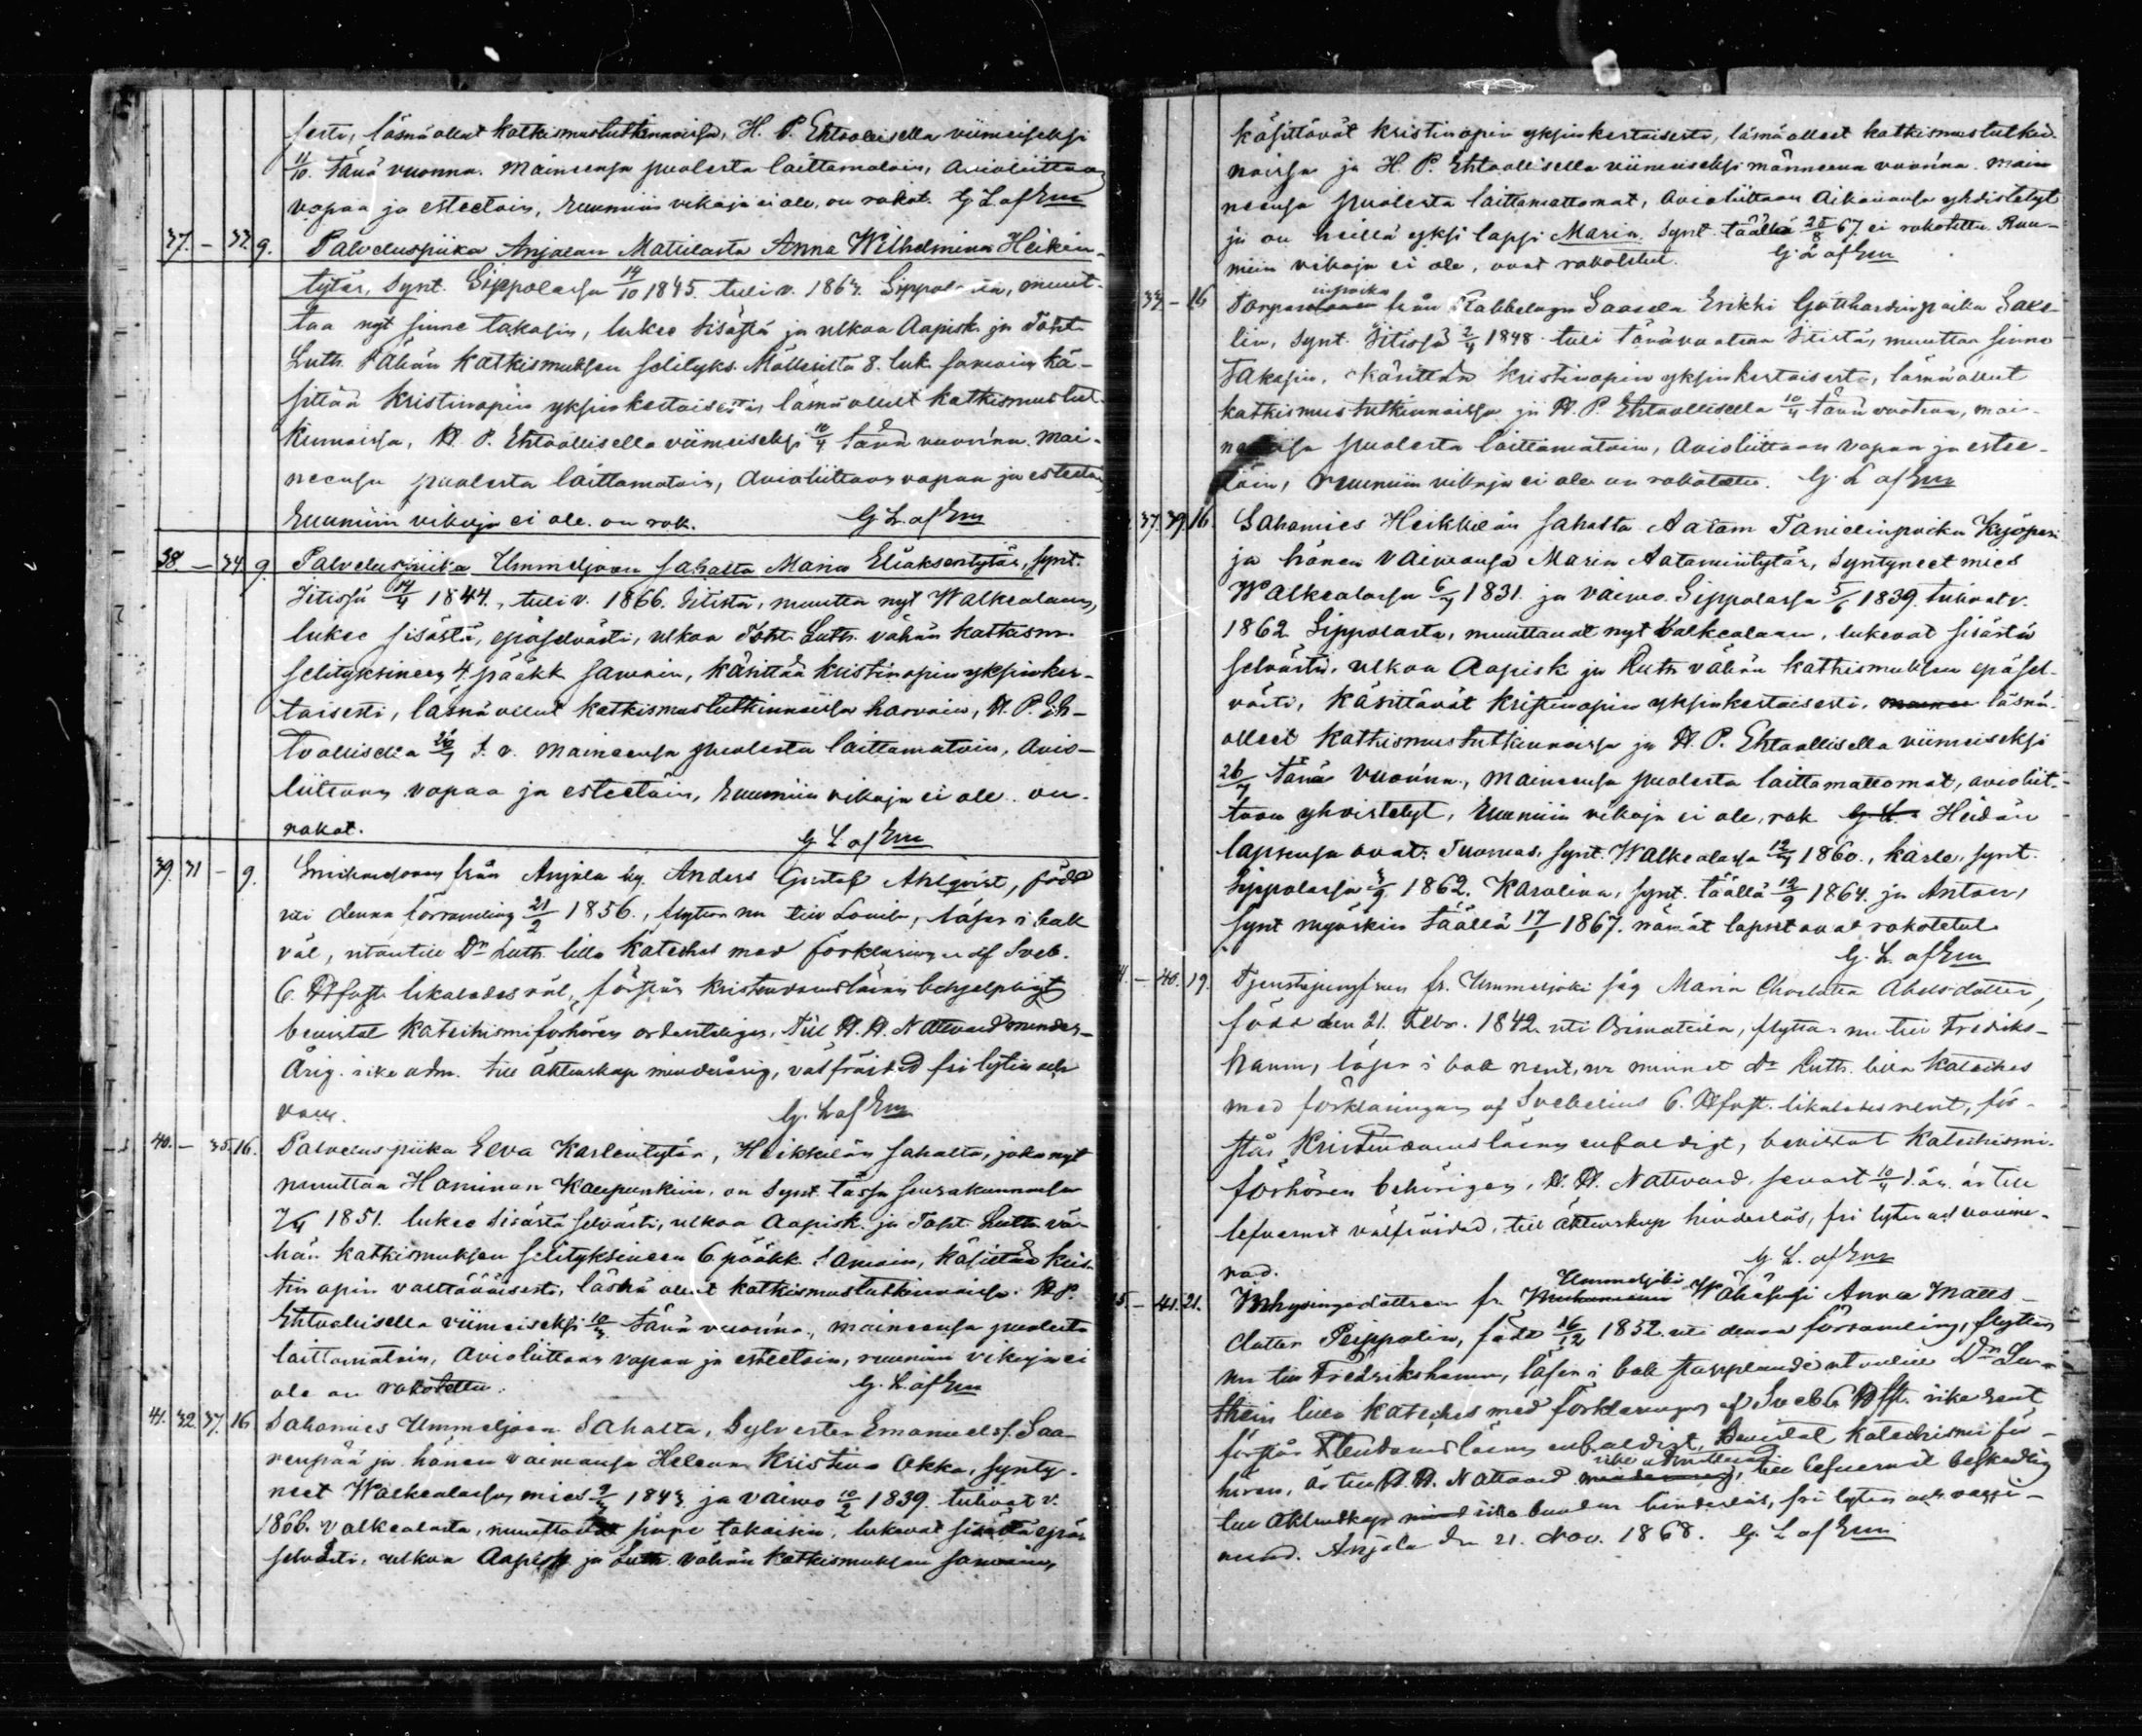 sesti, läsnä ollut katkismustutkinnoissa, H. P. Ehtoolisella viimeiseksi
11/10 tänä vuonna. Maineensa puolesta laittamatoin, avioliittoon
vapaa ja esteetoin, Ruumiin vikoja ei ole, on rokot. G L af Em
37. – 33. 9. Palveluspiika Anjalan Mattilasta Anna Wilhelmina Heikin-
tytär, synt. Sippolassa 14/10 1845. tuli v. 1867. Sippolasta, muut-
taa nyt sinne takasin, lukee sisästä ja ulkoa Aapisk. ja Toht.
Luth. Vähän Katkismuksen selityks. Mölleristä 8. luk. samoin kä-
sittää Kristinopin yksinkertaisesti, läsnä ollut katkismustut-
kinnoissa, H. P. Ehtoollisella viimeiseksi 10/4 tänä vuonna. Mai-
neensa puolesta laittamatoin, Avioliittoon vapaa ja esteetoin
Ruumiin vikoja ei ole. on rok. G. L. af Em
38. – 34. 9. Palveluspiika Ummeljoen sahalta Maria Eliaksentytär, synt.
Iitissä 14/4 1844., tuli v. 1866. Iitistä, muutta nyt Walkealaan,
lukee sisästä, epäselvästi, ulkoa Toht. Luth. vähän katkism.
selityksineen 4. pääkk samoin, käsittää kristinopin yksinker-
taisesti, läsnä ollut katkismustutkinnoissa harvoin, H. P. Eh-
toollisella 26/7 t. v. maineensa puolesta laittamatoin, avio-
liittoon vapaa ja esteetöin, Ruumiin vikoja ei ole. on
rokot. G L. af Em
39. 31 – 9. från Anjala by. Anders Gustaf Ahlqvist, född
uti denna församling 21/2 1856., flyttar nu till Lovisa, läser i bok
väl, utantill Dr. Luth. lilla Kateches med förklaringen af Sveb.
6. Hfst. likaledes väl, förstår kristendomsläran behjelpligt
bevistat Katechismiförhören ordentligen, till H. H. Nattvard minder-
årig. icke adm. till äktenskap minderårig, välfräjdad fri lytes och
vacc. G. L af Em
40. – 35. 16. Palveluspiika Eeva Kaarlentytär, Heikkilän sahalta, joka nyt
muuttaa Haminan Kaupunkiin, on synt. tässä seurakunnassa
7/4 1851. lukee sisästä selvästi, ulkoa Aapisk. ja Toht. Luth. vä-
hän katkismuksen selityksineen 6 pääkk. samoin, käsittää kris-
tin opin välttävästi, läsnä ollut katkismustutkinnoissa. H P.
Ehtoollisella viimeiseksi 10/4 tänä vuonna., maineensa puolesta
laittamatoin, avioliittoon vapaa ja esteetoin, ruumiin vikoja ei
ole on rokotettu. G. L. af Em
41. 32. 37. 16 Sahamies Ummeljoen Sahalta, Sylvester Emanuels. Saa-
renpää ja hänen vaimonsa Helena Kristina Akka, synty-
neet Walkealassa, mies 9/4 1843. ja vaimo 10/2 1839. tulivat v.
1866. valkealasta, muuttavat sinne takaisin, lukevat sisästä epä-
selvästi, ulkoa Aapisk ja Luth. vähän Katkismuksen samoin,
käsittävät kristinopin yksinkertaisesti, läsnä olleet katkismustutkin-
noissa ja H. P. Ehtoollisella viimeiseksi männeenä vuonna. mai-
neensa puolesta laittamattomat, avioliittoon Aikanansa yhdistetyt
ja on heillä yksi lapsi Maria synt. täällä 28/8 67. ei rokotettu. Ruu-
miin vikoja ei ole, ovat rokotetut. G. L af Em
33 – 16 från Rabbelugn Saarela Erikki Gotthardinpoika Eake-
lin, synt. Iitissä 2/4 1848. tuli tänävuotena Iitistä, muuttaa sinne
takasin, käsittää kristinopin yksinkertaisesti, läsnä ollut
katkismustutkinnoissa ja H. P. Ehtoollisella 10/4 tänä vuotena, mai-
neensa puolesta laittamatoin, Avioliittoon vapaa ja estee-
töin, Ruumiin vikoja ei ole on rokotettu. G. L af Em
37. 39. 16. Sahamies Heikkilän sahalta Aatam Tanielinpoika
ja hänen vaimonsa Maria Aatamintytär, syntyneet mies
Walkealassa 6/7 1831. ja vaimo. Sippolassa 5/6 1839. tulivat v.
1862. Sippolasta, muuttavat nyt Valkealaan, lukevat sisästä
selvästi, ulkoa Aapisk ja Luth vähän kathismuksen epäsel-
västi, käsittävät kristinopin yksinkertaisesti, läsnä-
olleet kathismustutkinnoissa ja H. P. Ehtoollisella viimeiseksi
26/7 tänä vuonna., maineensa puolesta laittamattomat, avioliit-
toon yhdistetyt, Ruumiin vikoja ei ole, rok Heidän
lapsensa ovat: Tuomas, synt. Walkealassa 12/4 1860., Kaarle, synt.
Sippolassa 3/9 1862. Karolina, synt. täällä 12/9 1864. ja Anton,
synt myöskin täällä 17/1 1867. nämät lapset ovat rokotetut.
G. L. af Em
– 40. 19. Tjenstejungfrun fr. Ummeljoki såg Maria Charlotta Abelsdotter,
född den 21. Febr. 1842. uti Artjärvi, flyttar nu till Fredriks-
hamn, läser i bok rent, ur minnet Dr. Luth. lilla Kateches
med förklaringen af Svebelius 6. Hfst. likaledes rent, för-
står Kristendomsläran enfaldigt, bevistat Katechismi-
förhören behörigen, H. H. Nattvard, senast 10/4 d. år. är till
lefvernet välfräjdad, till äktenskap hinderlös, fri lyten och vaccine-
rad. G. L. af Em
– 41. 21. Inhysingedottren fr. Ummeljoki Anna Matts-
dotter Peippolin, född 16/12 1852. uti denna församling, flyttar
nu till Fredrikshamn, läser i bok stapplande utantill Dr. Lu-
theri lilla Kateches med förklaringen af Sveb 6 Hfst. icke rent
förstår Kristendomsläran enfaldigt, Bevistat Katechismi för-
hören, är till H. H. Nattvard icke admitterad, till lefvernet beskedlig
till äktenskap icke bunden hinderlös, fri lyten och vacci-
nerad. Anjala den 21. Nov. 1868. G. L af Em